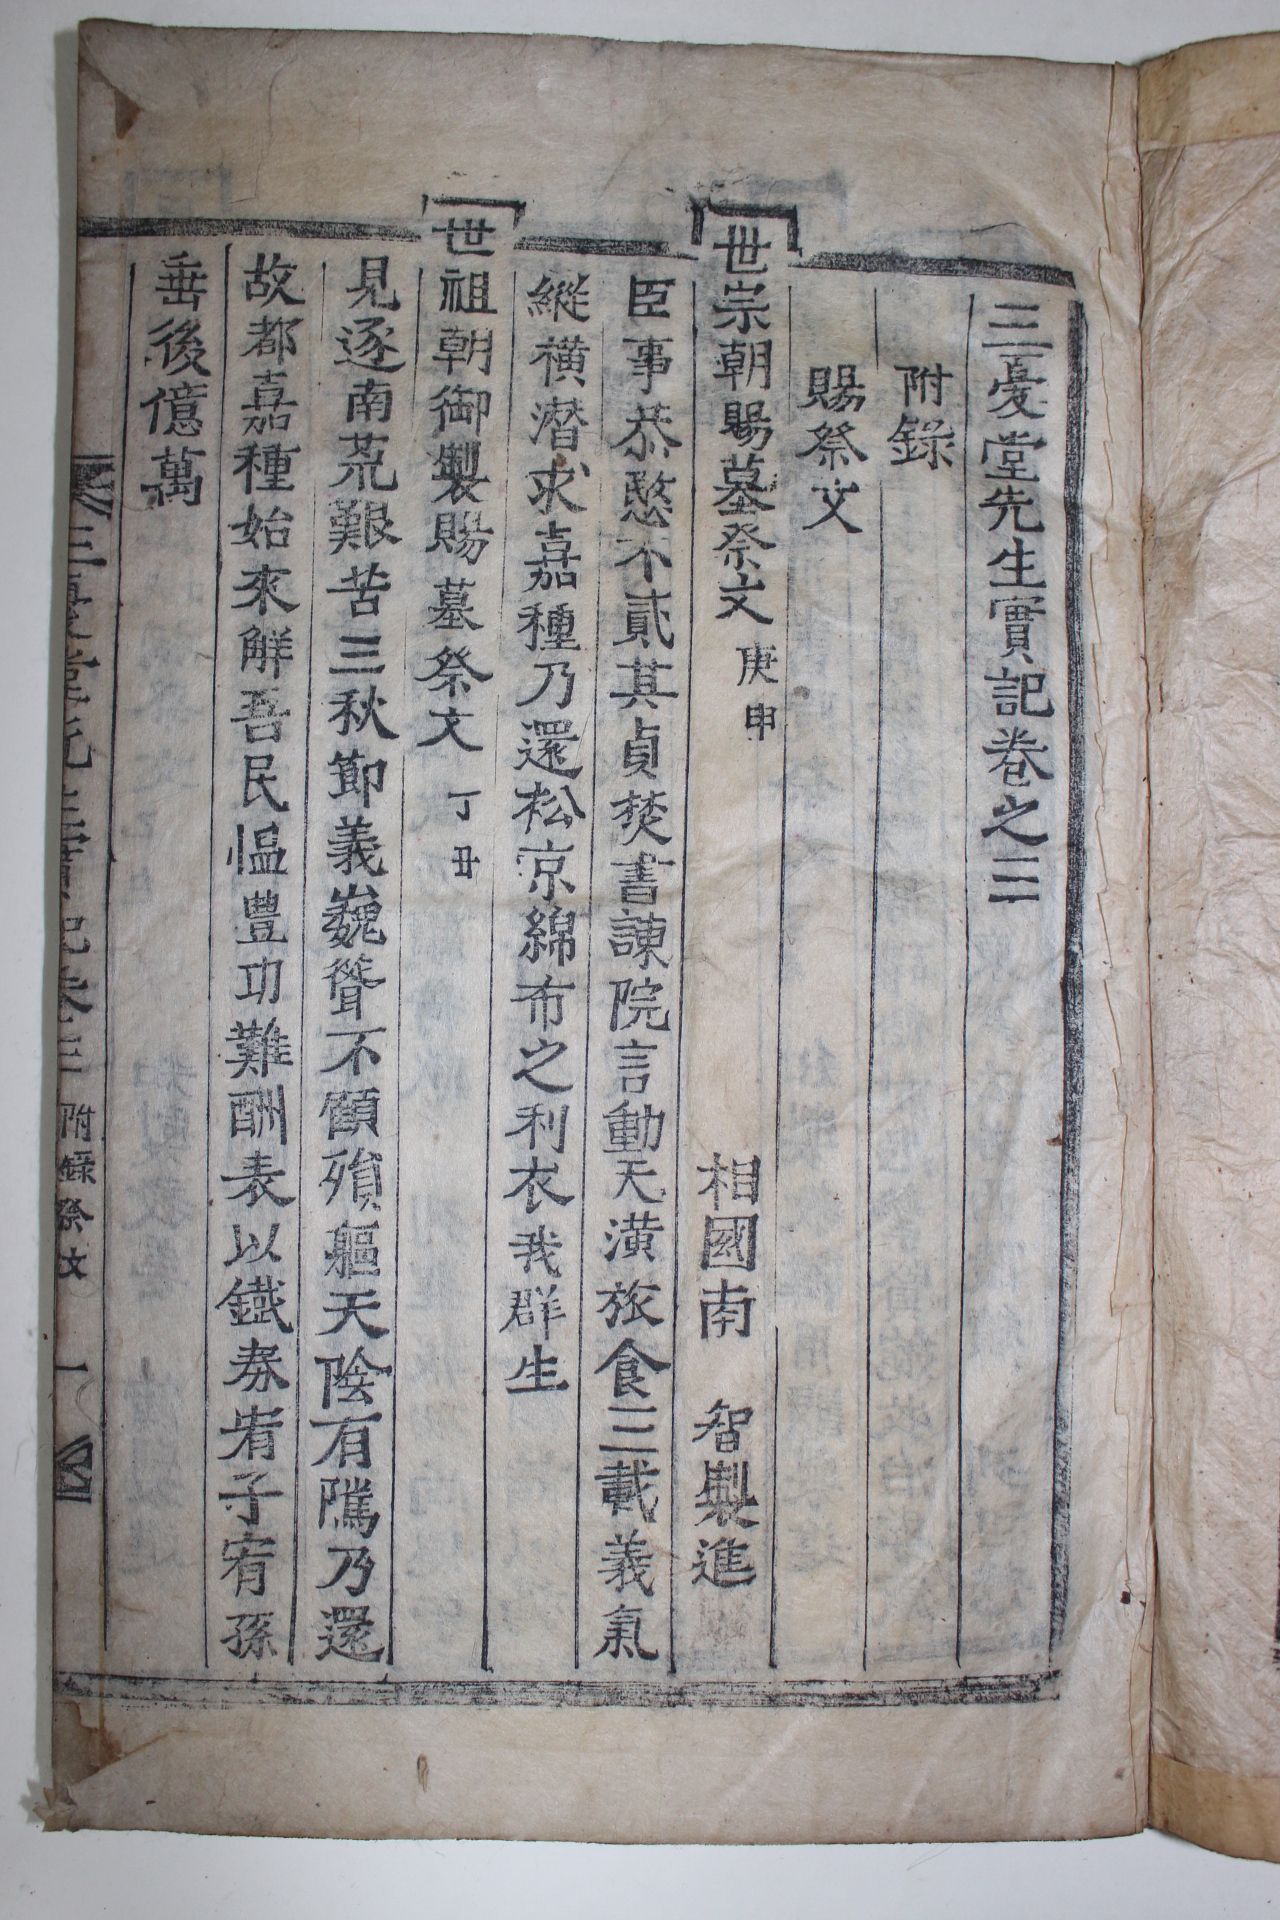 三憂堂先生實記卷之三
附錄
賜祭文
世宗朝賜墓祭文 庚申 相國南 智製進
臣事恭愍不貳其貞焚書諫院言動天潢旅食三載義氣
縱橫潛求嘉種乃還松京綿布之利衣我群生
世祖朝御製賜墓祭文 丁丑
見逐南荒艱苦三秋節義巍聳不顧殞軀天陰有隲乃還
故都嘉種始來解吾民慍豊功難酬表以鐵券宥子宥孫
垂後億萬
三憂堂先生實記卷三 附錄祭文 一